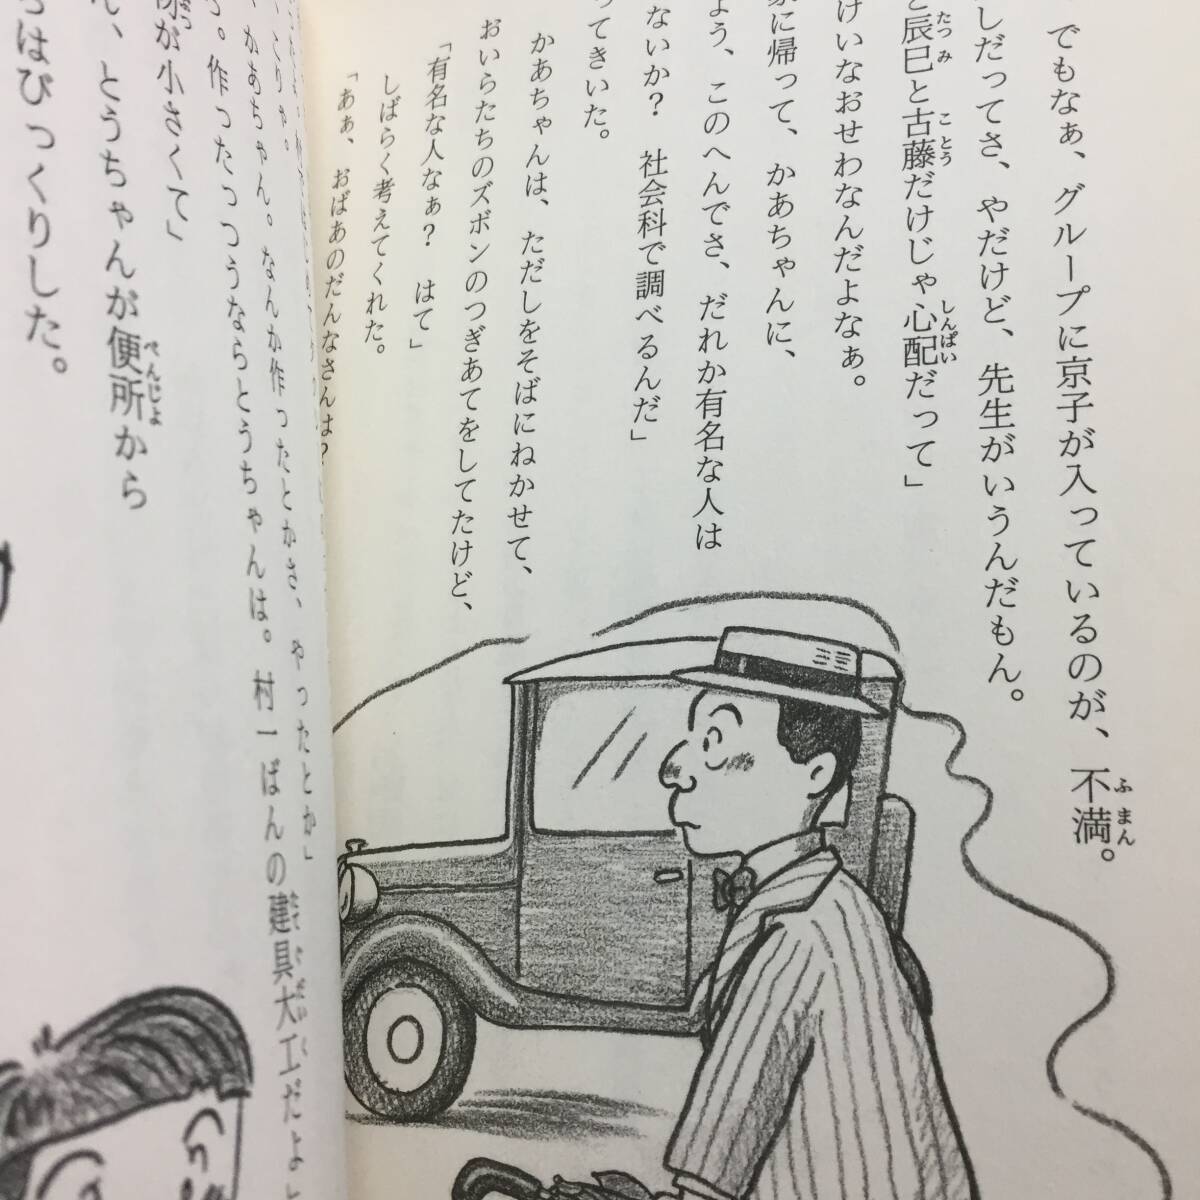 でもなぁ、グループに京子が入っているのが、不満。
しだってさ、やだけど、先生がいうんだもん。
辰巳と古藤だけじゃ心配だって」
けいなおせわなんだよなぁ。
に帰って、かあちゃんに、
よう、このへんでさ、だれか有名な人は
ないか？　社会科で調べるんだ」
ってきいた。
かあちゃんは、ただしをそばにねかせて、
おいらたちのズボンのつぎあてをしてたけど、
「有名な人なぁ？　はて」
しばらく考えてくれた。
「あぁ、おばあのだんなさんは？
村一ばんの建具大工だよ
なんか作ったとかさ、やったとか」
かあちゃん。
作ったっつうならとうちゃんは。
こりゃ。
が小さくて」
とうちゃんが便所から
はびっくりした。